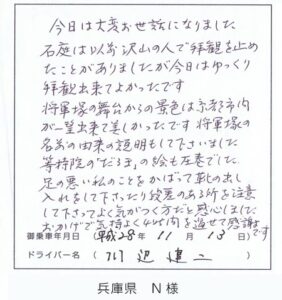 今日は大変お世話になりました
石庭は以前沢山の人で拝観を止め
たことがありましたが今日はゆっくり
拝観出来てよかったです
将軍塚の舞台からの景色は京都市内
が一望出来て美しかったです将軍塚の
名前の由来の説明もして下さいました
等持院の“だるま”の絵も圧巻でした
足の悪い私のことをかばって車の出し
入れをして下さったり段差のある所を注意
して下さってよく気がつく方だと感心しました
おかげで気持よく4時間を過せて感謝です
御乗車年月日（平成28年 11月 13日）
ドライバー名（川辺 健二）
兵庫県 N様